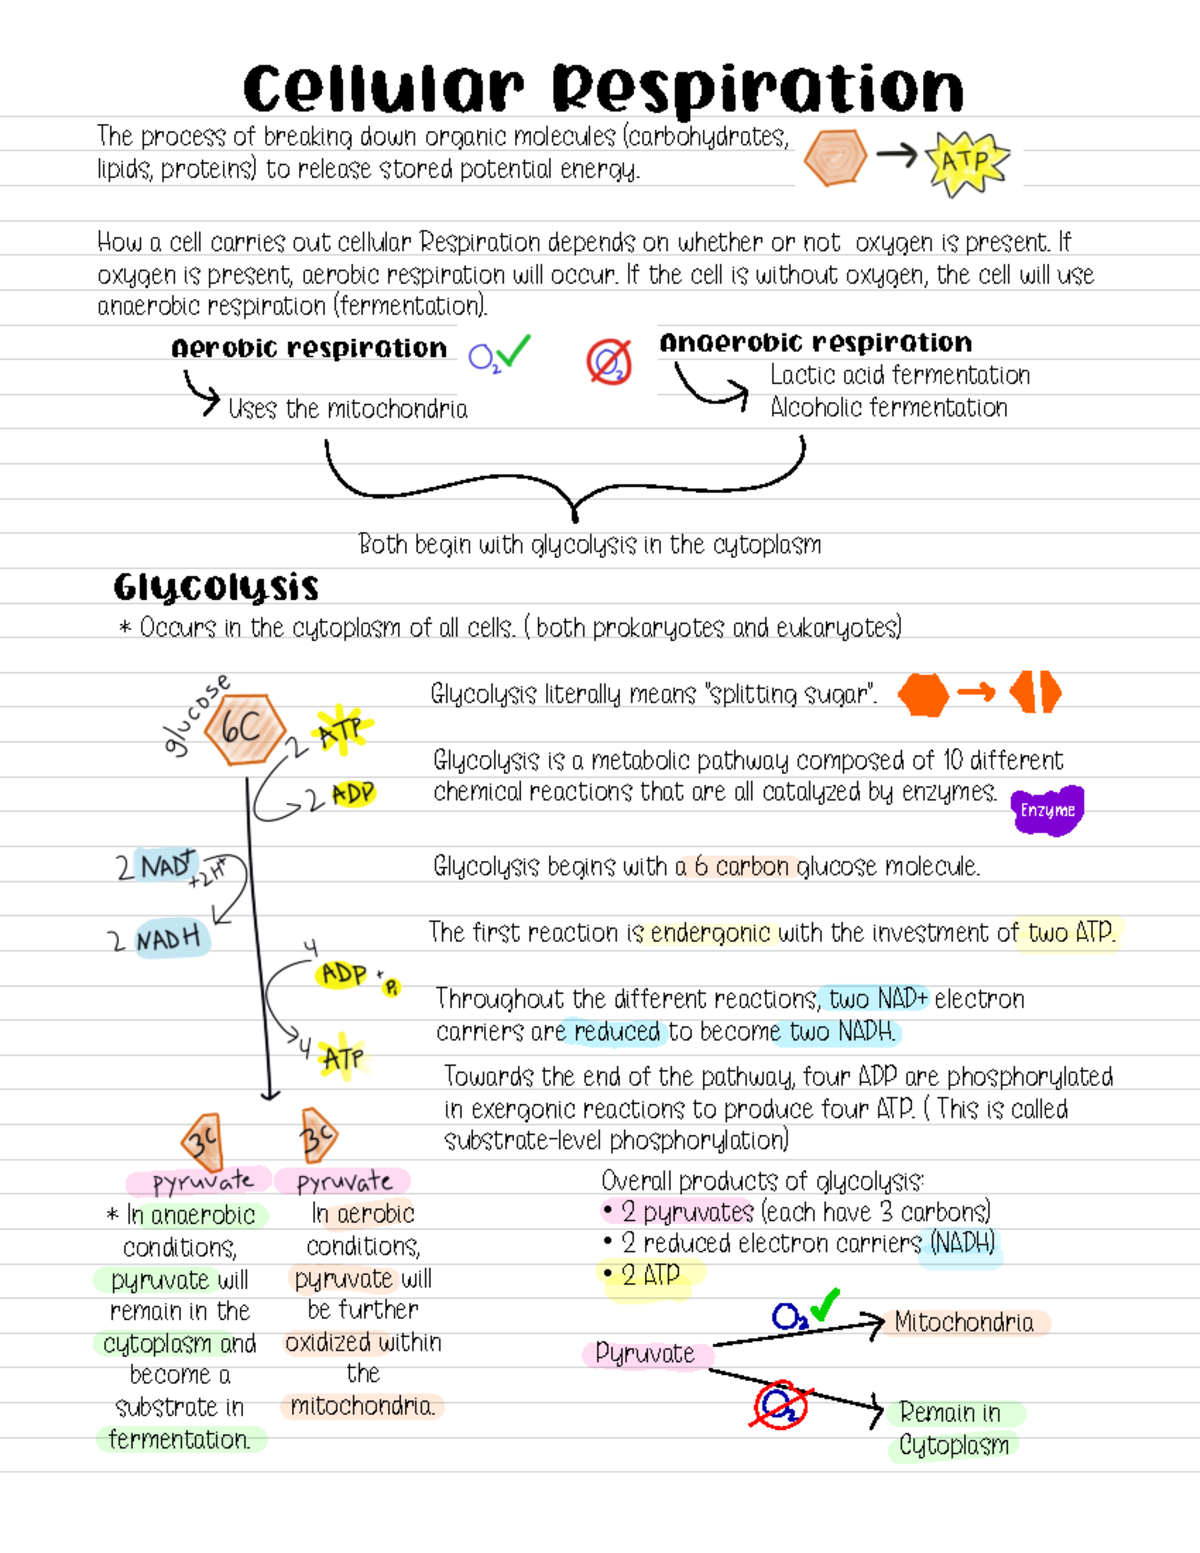 Cellular Respiration
The process of breaking down organic molecules (carbohydrates,
lipids, proteins) to release stored potential energy.
ATP
How a cell carries out cellular Respiration depends on whether or not oxygen is present. If
oxygen is present, aerobic respiration will occur. If the cell is without oxygen, the cell will use
anaerobic respiration (fermentation).
Aerobic respiration
O₂
Uses the mitochondria
O₂
Anaerobic respiration
Lactic acid fermentation
Alcoholic fermentation
Both begin with glycolysis in the cytoplasm
Glycolysis
* Occurs in the cytoplasm of all cells. ( both prokaryotes and eukaryotes)
glucose
6C
2 ATP
2 ADP
2 NAD+
+2H+
2 NADH
4
ADP + Pi
4 ATP
3C
3C
pyruvate
pyruvate
Glycolysis literally means "splitting sugar".
Glycolysis is a metabolic pathway composed of 10 different
chemical reactions that are all catalyzed by enzymes.
Enzyme
Glycolysis begins with a 6 carbon glucose molecule.
The first reaction is endergonic with the investment of two ATP.
Throughout the different reactions, two NAD+ electron
carriers are reduced to become two NADH.
Towards the end of the pathway, four ADP are phosphorylated
in exergonic reactions to produce four ATP. ( This is called
substrate-level phosphorylation)
* In anaerobic
conditions,
pyruvate will
remain in the
cytoplasm and
become a
substrate in
fermentation.
In aerobic
conditions,
pyruvate will
be further
oxidized within
the
mitochondria.
Overall products of glycolysis:
• 2 pyruvates (each have 3 carbons)
• 2 reduced electron carriers (NADH)
• 2 ATP
Pyruvate
O₂
Mitochondria
O₂
Remain in
Cytoplasm